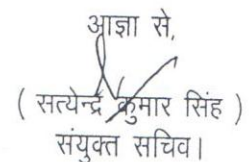 आज्ञा से,
( सत्येन्द्र कुमार सिंह )
संयुक्त सचिव।